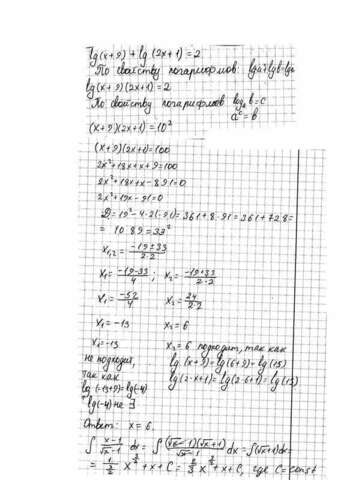 lg(x+9) + lg(2x+1) = 2
По свойству логарифмов lga+lgb=lgab
lg(x+9)(2x+1)=2
По свойству логарифмов logₐb=c
aᶜ=b
(x+9)(2x+1)=10²
(x+9)(2x+1)=100
2x²+18x+x+9=100
2x²+18x+x-891=0
2x²+19x-91=0
D=19²-4·2(-91)=361+8·91=361+728=
= 1089=33²
x₁,₂ = (-19±33)/(2·2)
x₁ = (-19-33)/4 ; x₂ = (-19+33)/(2·2)
x₁ = -52/4 x₂ = 24/(2·2)
x₁ = -13 x₂ = 6
x₁=-13 x₂ = 6 подходит, так как
не подходит, lg(x+9)=lg(6+9)=lg(15)
так как lg(2·x+1)=lg(2·6+1)=lg(13)
lg(-13+9)=lg(-4)
lg(-4) не ∃
Ответ: x = 6.
∫ (x-1)/(√x-1) dx = ∫ ((√x-1)(√x+1))/(√x-1) dx = ∫(√x+1)dx=
= 1/(3/2) x^(3/2) + x + C = 2/3 x^(3/2) + x + C, где C = const